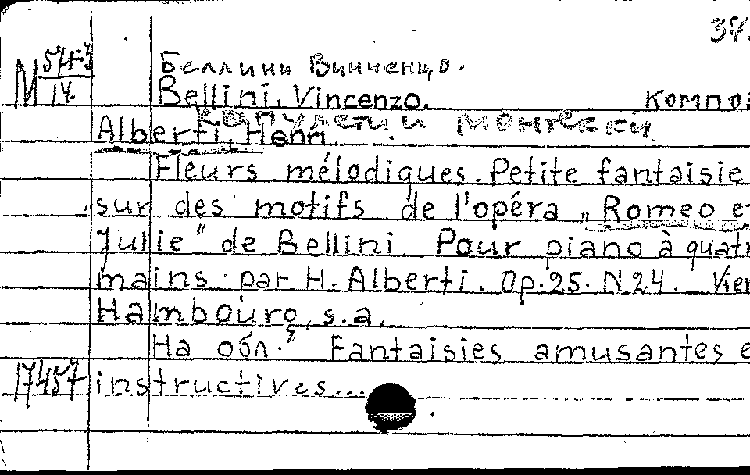 37
М 574-3/14
Беллини Винченцо.
Bellini, Vincenzo. Компо
Капулетти и Монтекки
Alberti Henri
Fleurs mélodiques. Petite fantaisie
sur des motifs de l'opéra „Romeo et
Julie" de Bellini Pour piano à quatr
mains par H. Alberti. Op. 25. N 24. Vien
Hambourg, s.a.
На обл.: Fantaisies amusantes e
17457 instructives...